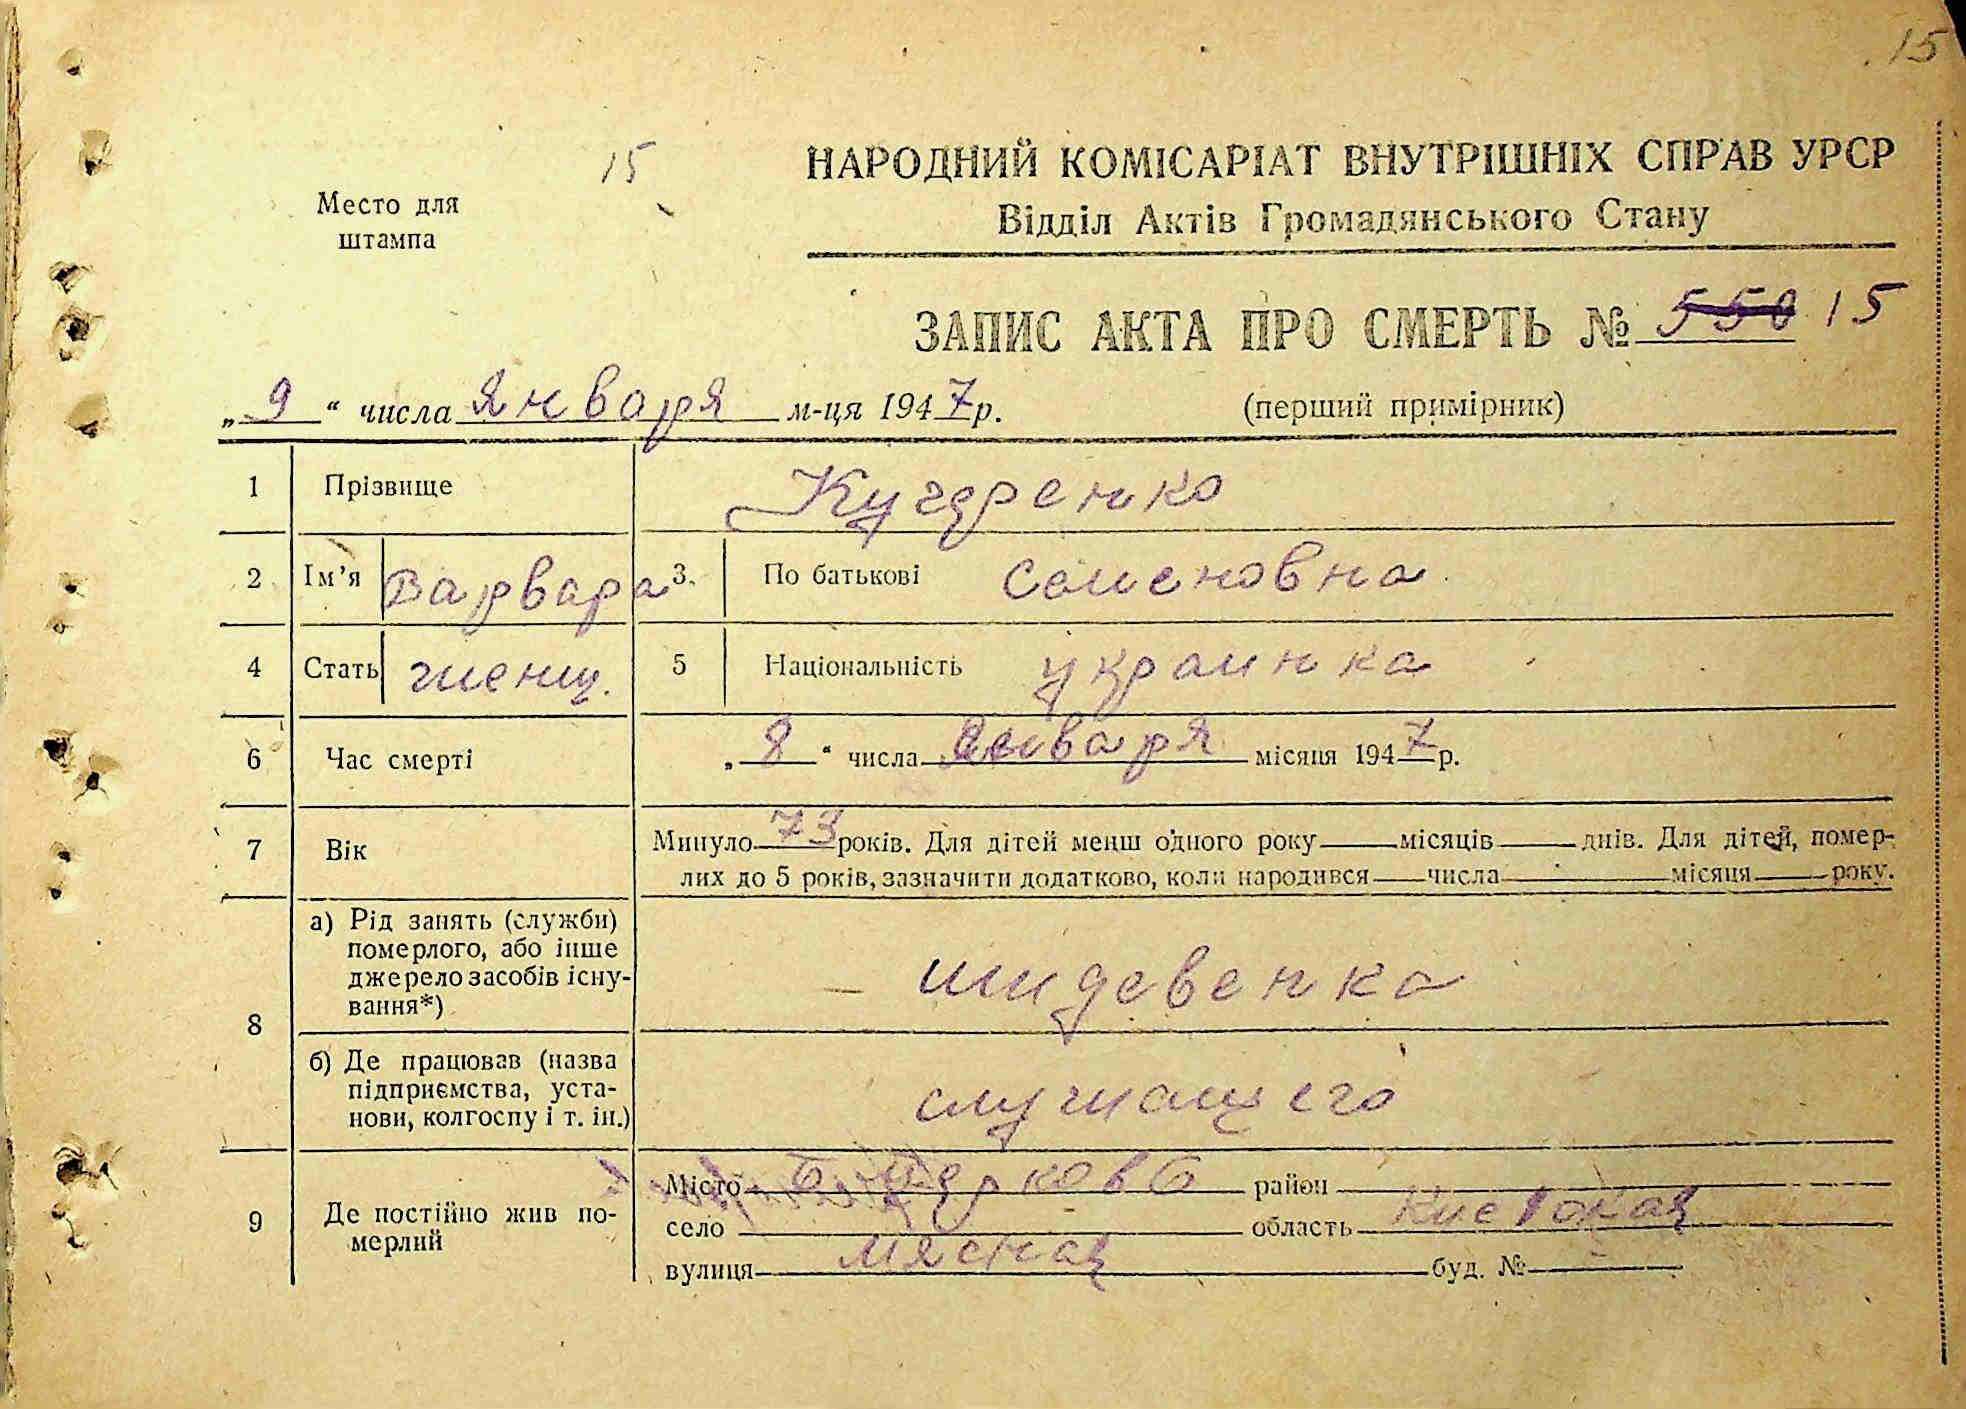 15
15
НАРОДНИЙ КОМІСАРІАТ ВНУТРІШНІХ СПРАВ УРСР
Место для
штампа
Відділ Актів Громадянського Стану
ЗАПИС АКТА ПРО СМЕРТЬ № 550 15
„ 9 “ числа Января м-ця 1947 р.
(перший примірник)
1 Прізвище Кучеренко
2 Ім’я Варвара 3. По батькові Семеновна
4 Стать женщ. 5 Національність украинка
6 Час смерті „ 8 “ числа Января місяця 1947 р.
7 Вік Минуло 73 років. Для дітей менш одного року місяців днів. Для дітей, помер-
лих до 5 років, зазначити додатково, коли народився числа місяця року.
8 а) Рід занять (служби)
померлого, або інше
джерело засобів існу-
вання*)
иждевенка
б) Де працював (назва
підприємства, уста-
нови, колгоспу і т. ін.)
служащего
9 Де постійно жив по-
мерлий
Місто Б Церковь район
село область Киевская
вулиця Мясная буд. №